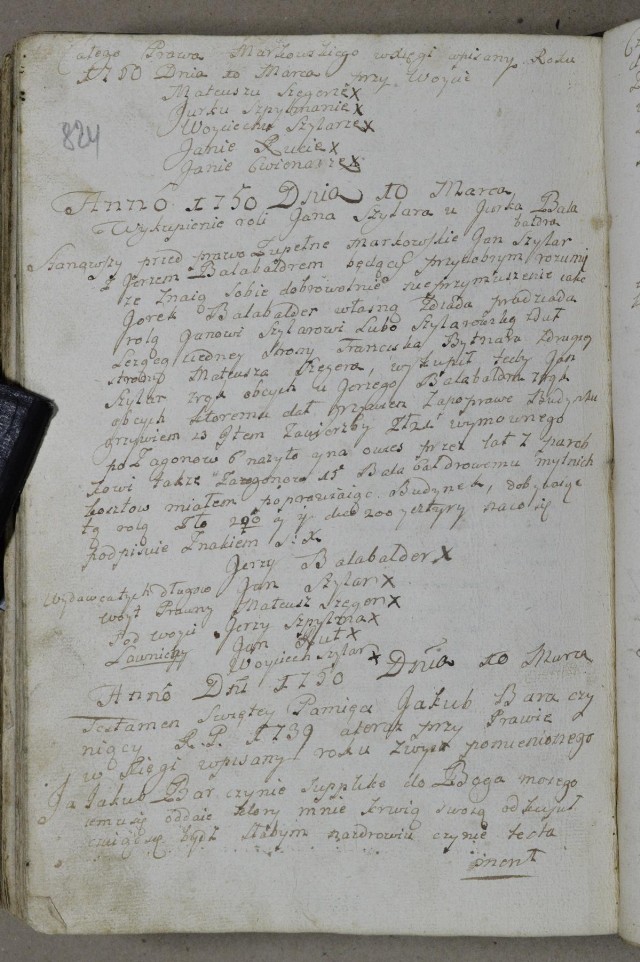 Całego Prawa Markowskiego w księgi wpisany Roku
1750 Dnia 10 Marca przy Woycie
Mateuszu Szegorze x
Jurku Szpytmanie x
Woyciechu Szylarze x
824
Janie Rucie x
Janie Cwionarze x
Anno 1750 Dnia 10 Marca
Wykupienie roli Jana Szylara u Jurka Bala
baldra
Stanąwszy przed prawo Zupełne markowskie Jan Szylar
z Jerzem Balabaldrem będący przydobrym rozumi
ze Znaią Sobie dobrowolnie nieprzymuszenie iako
Jorek Balabalder własną Dziada pradziada
rolą Janowi Szylarowi Lubo Szylarowską
Lezącą iedney Strony Franciszka Bytnara Drugiey
strony Mateusza Szegera, wykupił tedy Jan
Szylar z rąk obcych u Jerzego Balabaldra z rąk
obcych ktoremu dał grzywien Zapoprawe Budynku
grzywien 23 wymownego
po Zagonow 6 nazyto a na owies przez lat 7 pareb
kowi także Zagonow 15 Balabaldrowemu
kosztow miałem poprawiaiąc Budynek, dobywaiąc
tą rolą Zło 290 200 y sztyry na co się
podpisuie Znakiem S. X
Jerzy Balabalder x
Wydawcałych długow Jan Szylar x
woyt Prawny Mateusz Szegor x
Pod woyci Jerzy Szpytma x
Ławnicy Jan Rut x
Woyciech Szylar x
Anno Dni 1750 Dnia 10 Marca
Testamen Swiętey Pamięci Jakub Bara czy
niący R. P. 1739 a teraz przy Prawie
w Księgi wpisany roku zwysz pomienionego
Ja Jakub Bar czynie Supplike do Boga mocego
emu się oddaie ktory mnie krwią swoią odkupuł
będz Słabym na zdrowiu czynię testa
ment